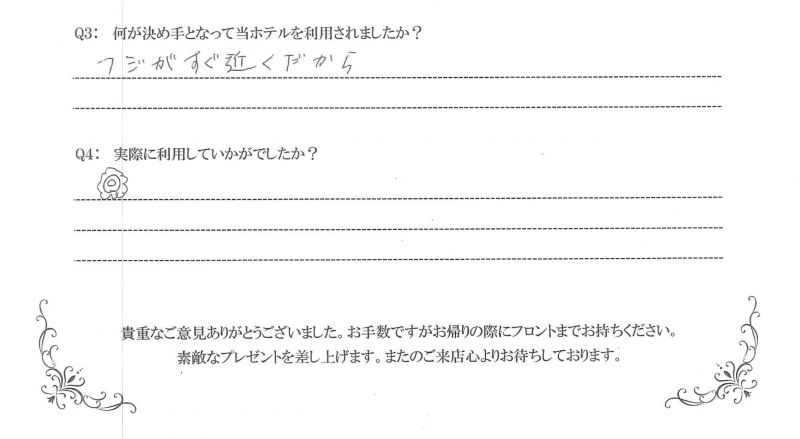 Q3： 何が決め手となって当ホテルを利用されましたか？
フジがすぐ近くだから
Q4： 実際に利用していかがでしたか？
貴重なご意見ありがとうございました。お手数ですがお帰りの際にフロントまでお持ちください。
素敵なプレゼントを差し上げます。またのご来店心よりお待ちしております。